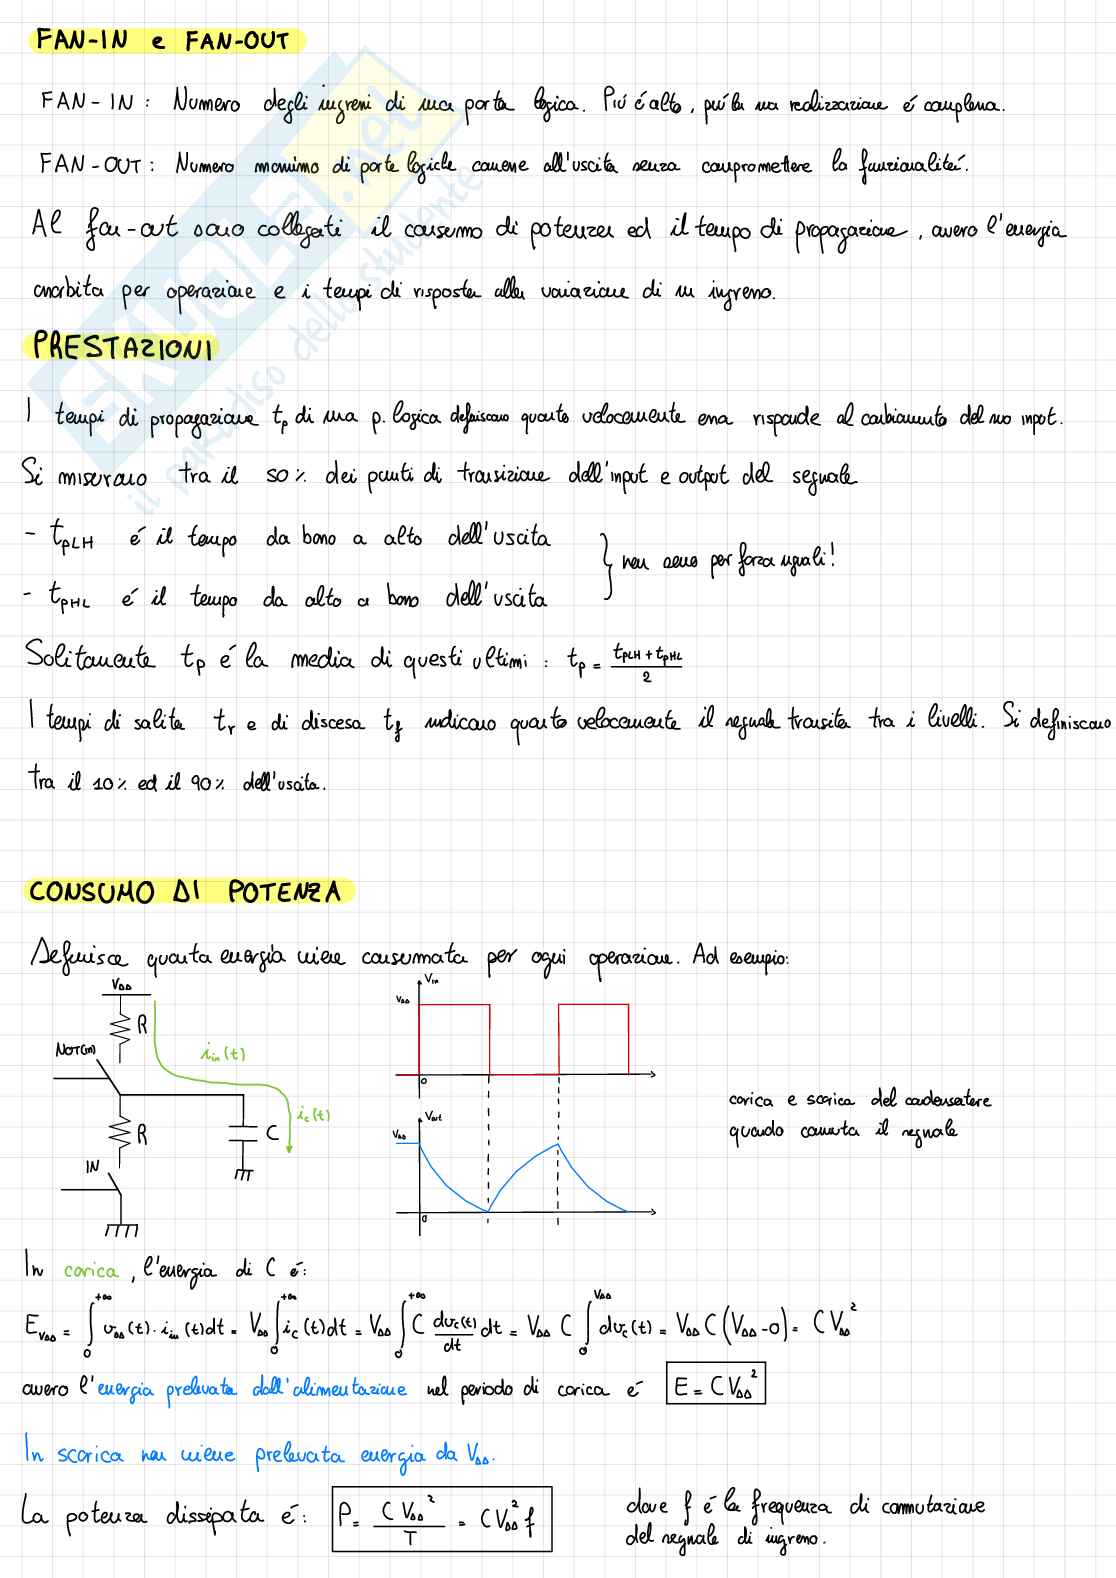 FAN-IN e FAN-OUT
FAN-IN : Numero degli ingressi di una porta logica. Più é alto, più la sua realizzazione é complessa.
FAN-OUT : Numero massimo di porte logiche connesse all'uscita senza compromettere la funzionalità.
Al fan-out sono collegati il consumo di potenza ed il tempo di propagazione, ovvero l'energia
assorbita per operazione e i tempi di risposta alla variazione di un ingresso.
PRESTAZIONI
I tempi di propagazione tp di una p. logica definiscono quanto velocemente essa risponde al cambiamento del suo input.
Si misurano tra il 50% dei punti di transizione dell'input e output del segnale
- tpLH é il tempo da basso a alto dell'uscita
- tpHL é il tempo da alto a basso dell'uscita
} non sono per forza uguali!
Solitamente tp é la media di questi ultimi : tp = (tpLH + tpHL)/2
I tempi di salita tr e di discesa tf indicano quanto velocemente il segnale transita tra i livelli. Si definiscono
tra il 10% ed il 90% dell'uscita.
CONSUMO DI POTENZA
Definisce quanta energia viene consumata per ogni operazione. Ad esempio:
VDD
R
NOT(IN)
iin(t)
ic(t)
R
C
IN
Vin
VDD
0
Vout
VDD
0
carica e scarica del condensatore
quando commuta il segnale
In carica, l'energia di C é:
EVDD = ∫0+∞ vDD(t)·iin(t)dt = VDD ∫0+∞ ic(t)dt = VDD ∫0+∞ C dvc(t)/dt dt = VDD C ∫0VDD dvc(t) = VDD C(VDD-0) = C VDD²
ovvero l'energia prelevata dall'alimentazione nel periodo di carica é E = C VDD²
In scarica non viene prelevata energia da VDD.
La potenza dissipata é: P = C VDD²/T = C VDD² f
dove f é la frequenza di commutazione
del segnale di ingresso.
SKUOLA.net
il paradiso dello studente